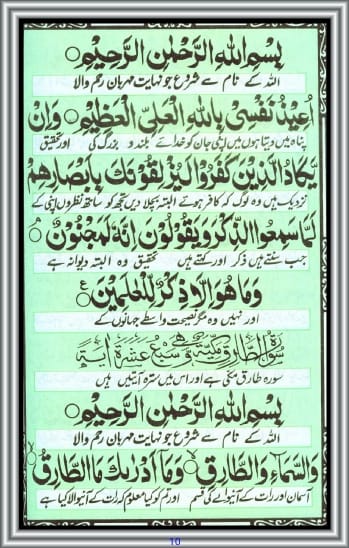 بِسْمِ اللهِ الرَّحْمٰنِ الرَّحِيْمِ ○
اللہ کے نام سے شروع جو نہایت مہربان رحم والا
اُعِيْذُ نَفْسِيْ بِاللهِ الْعَلِيِّ الْعَظِيْمِ ○ وَاِنْ
پناہ میں دیتا ہوں میں اپنی جان کو خدائے بلند و بزرگ کی اور تحقیق
يَّكَادُ الَّذِيْنَ كَفَرُوْا لَيُزْلِقُوْنَكَ بِاَبْصَارِهِمْ
نزدیک ہیں وہ لوگ کہ کافر ہوئے البتہ بچلا دیں تجھ کو ساتھ نظروں اپنی کے
لَمَّا سَمِعُوا الذِّكْرَ وَيَقُوْلُوْنَ اِنَّهٗ لَمَجْنُوْنٌ ○
جب سنتے ہیں ذکر اور کہتے ہیں تحقیق وہ البتہ دیوانہ ہے
وَمَا هُوَ اِلَّا ذِكْرٌ لِّلْعٰلَمِيْنَ ○ ع
اور نہیں وہ مگر نصیحت واسطے جہانوں کے
سُوْرَةُ الطَّارِقِ مَكِّيَّةٌ وَّهِيَ سَبْعَ عَشَرَةَ اٰيَةً
سورہ طارق مکی ہے اور اس میں سترہ آیتیں ہیں
بِسْمِ اللهِ الرَّحْمٰنِ الرَّحِيْمِ ○
اللہ کے نام سے شروع جو نہایت مہربان رحم والا
وَالسَّمَآءِ وَالطَّارِقِ ○ وَمَآ اَدْرٰىكَ مَا الطَّارِقُ ○
آسمان اور رات کے آنیوالے کی قسم اور تم کو کیا معلوم کہ رات کے آنیوالا کیا ہے
10